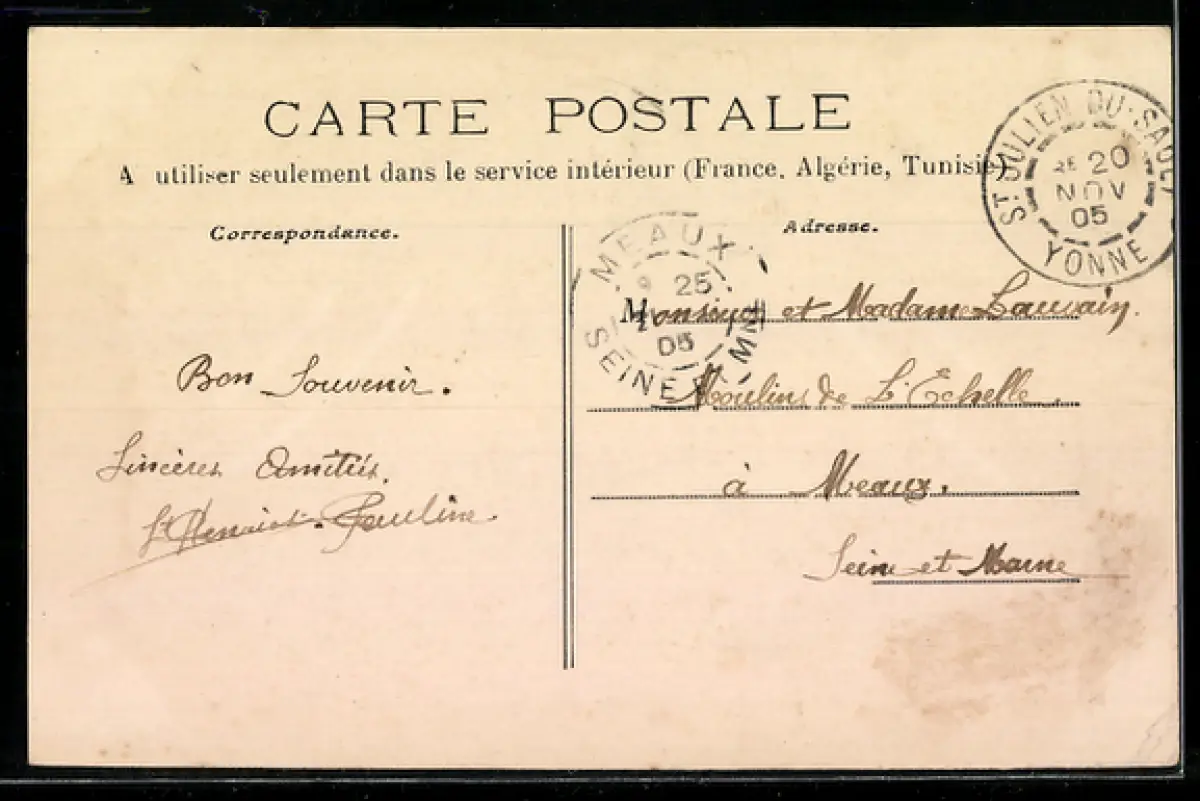 CARTE POSTALE
A utiliser seulement dans le service intérieur (France, Algérie, Tunisie)
ST JULIEN-DU-SAULT
20
NOV
05
YONNE
Correspondance.
Bon Souvenir.
Sincères Amitiés.
Pauline.
Adresse.
MEAUX
25
05
SEINE ET MNE
Monsieur et Madame Lauvain.
Moulins de L'Echelle.
à Meaux.
Seine et Marne